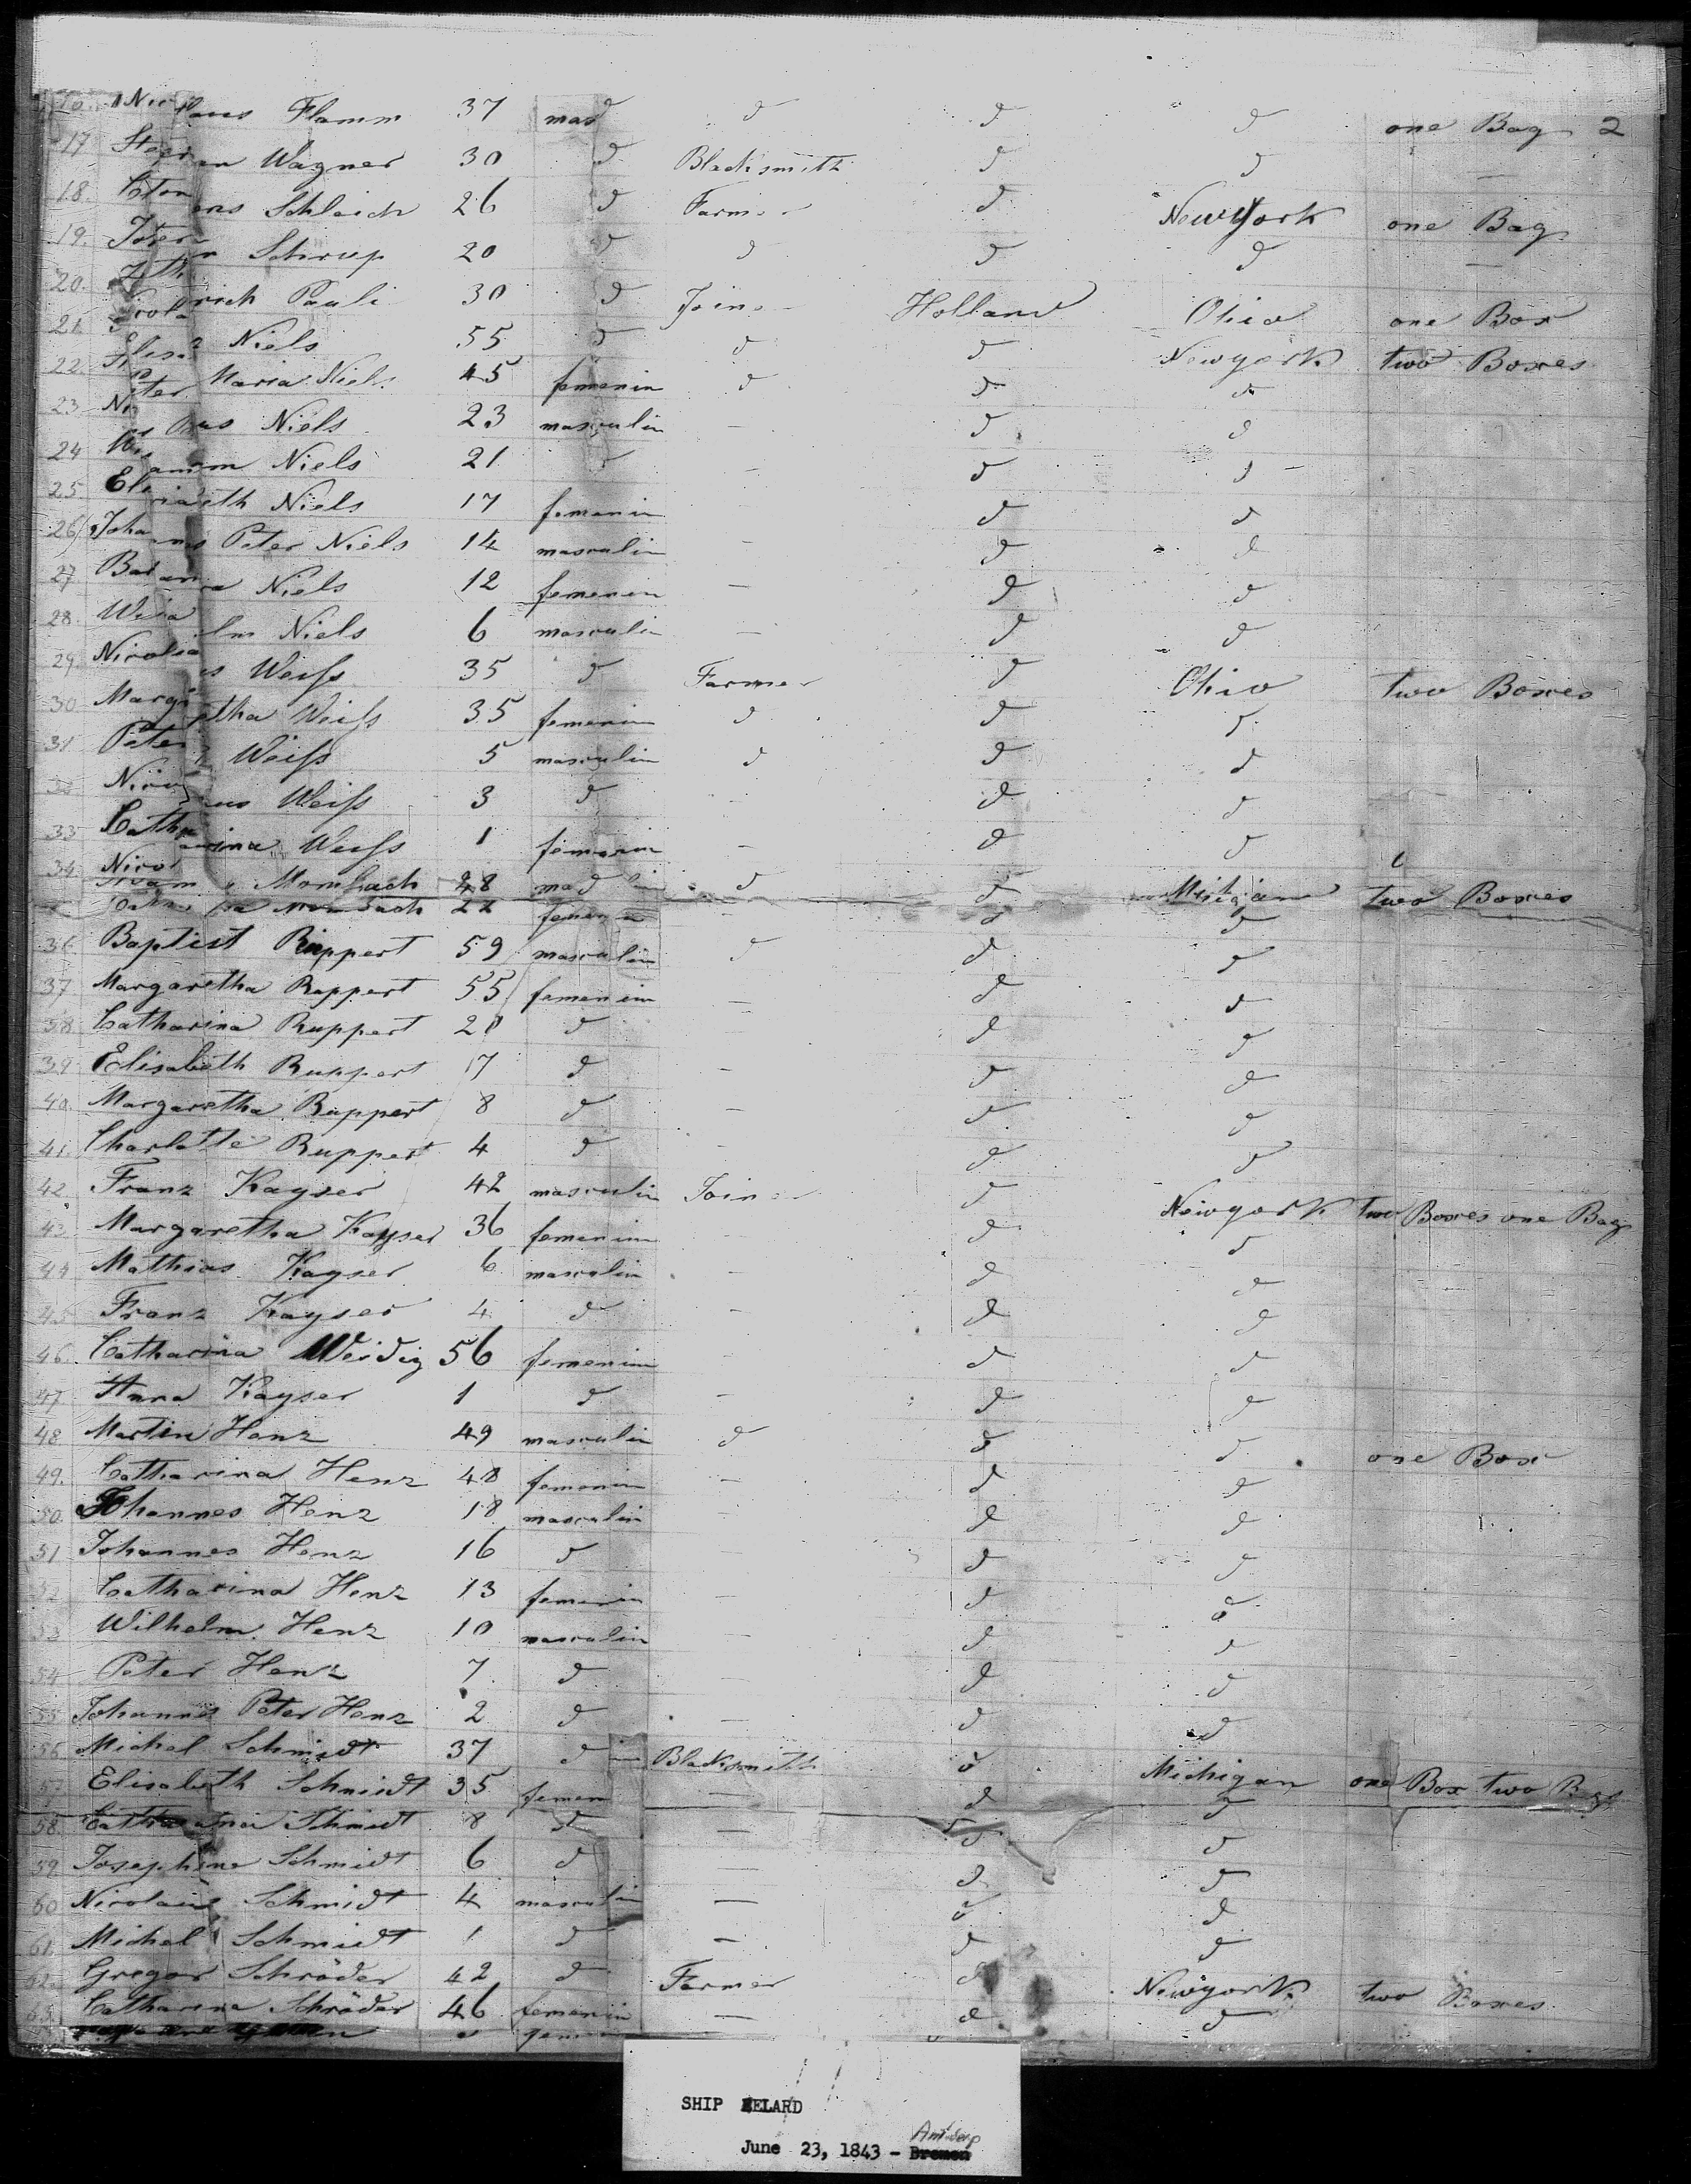 Flamm 37 mas d d d d one Bag 2
17 Wagner 30 d Blacksmith d d —
18. Schleich 26 d Farmer d Newyork one Bag
19. Schrup 20 d d d d —
20. Pauli 30 d Joiner Holland Ohio one Box
21. Niels 55 d d d Newyork two Boxes
22 Maria Niels 45 femenin d d d
23 Niels 23 masculin — d d
24 Niels 21 d — d d
25. Niels 17 femenin d d
26 Johannes Peter Niels 14 masculin — d d
27 Niels 12 femenin — d d
28. Niels 6 masculin — d d
29 Weiss 35 d Farmer d Ohio two Boxes
30 Weiss 35 femenin d d d
31 Peter Weiss 5 masculin d d d
Weiss 3 d — d d
33 Catharina Weiss 1 femenin — d d
34. Mombach 28 mas d d d two Boxes
Mombach femenin — d d
36 Baptist Ruppert 59 masculin d d d
37 Margaretha Ruppert 55 femenin — d d
38 Catharina Ruppert 20 d — d d
39 Elisabeth Ruppert 17 d — d d
40. Margaretha Ruppert 8 d — d d
41. Charlotte Ruppert 4 d — d d
42. Franz Kayser 42 masculin Joiner d Newyork two Boxes one Bag
43. Margaretha Kayser 36 femenin — d d
44 Mathias Kayser 6 masculin — d d
45 Franz Kayser 4 d — d d
46. Catharina Weidig 56 femenin — d d
47. Anna Kayser 1 d — d d
48 Martin Henz 49 masculin d d d one Box
49. Catharina Henz 48 femenin — d d
50. Johannes Henz 18 masculin — d d
51 Johannes Henz 16 d — d d
52 Catharina Henz 13 femenin — d d
53 Wilhelm Henz 10 masculin — d d
54 Peter Henz 7 d — d d
55 Johannes Peter Henz 2 d — d d
56 Michel Schmidt 37 d Blacksmith d Michigan one Box two Bags
57 Elisabeth Schmidt 35 femen — d d
58. Catharina Schmidt 8 d — d d
59 Josephine Schmidt 6 d — d d
60 Nicolaus Schmidt 4 masculin — d d
61. Michel Schmidt 1 d — d d
62. Gregor Schröder 42 d Farmer d Newyork two Boxes
63. Catharina Schröder 46 femenin — d d
SHIP ELARD
Antwerp
June 23, 1843 - Bremen